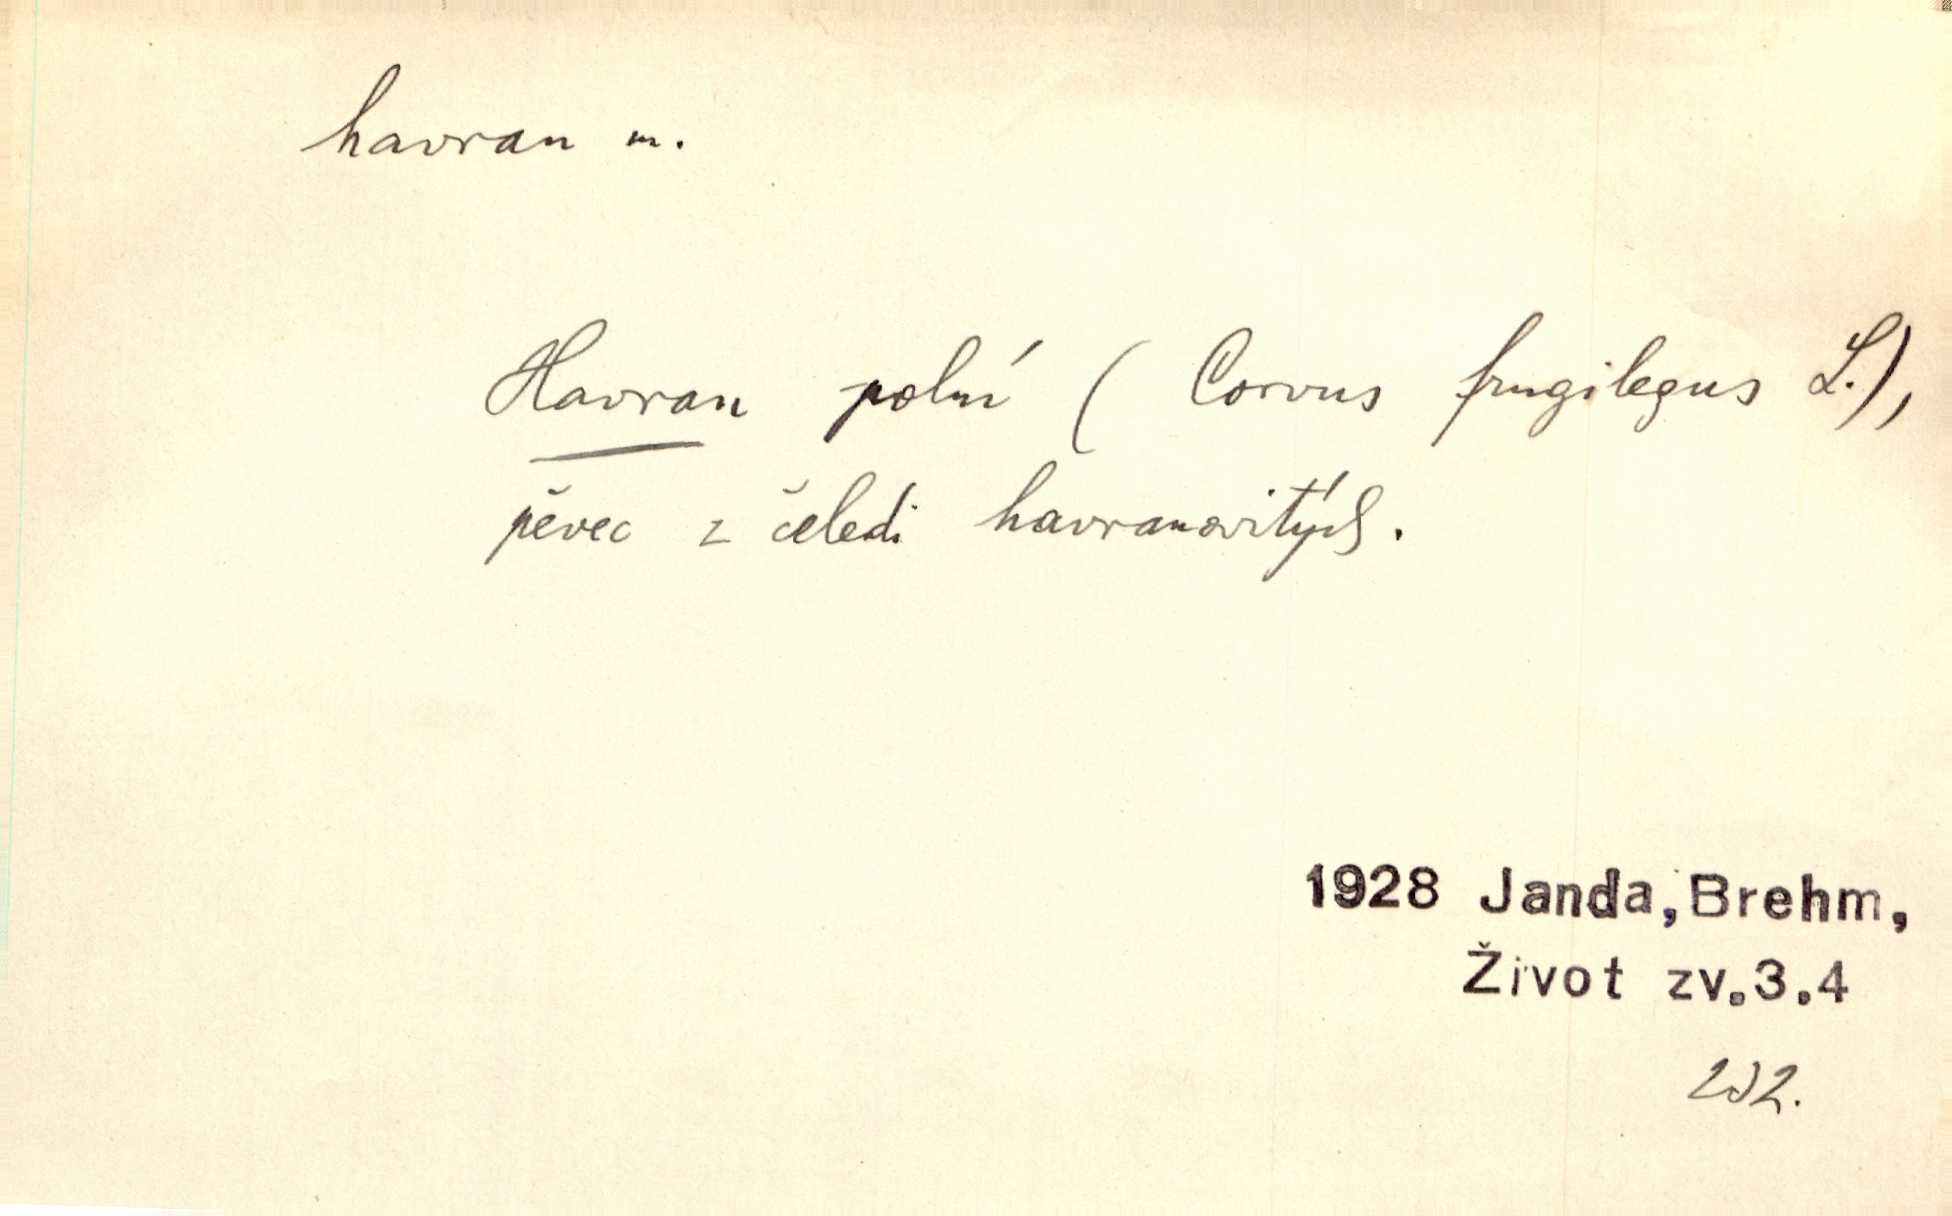 havran m.
Havran polní (Corvus frugilegus L.),
pěvec z čeledi havranovitých.
1928 Janda, Brehm,
Život zv.3.4